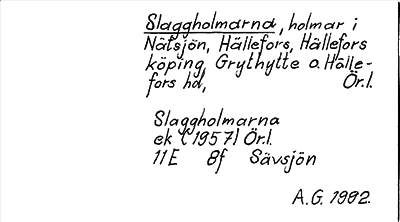 Slaggholmarna, holmar i
Nätsjön, Hällefors, Hällefors
köping, Grythytte o. Hälle-
fors hd, Ör.l.
Slaggholmarna
ek (1957) Ör.l.
11E 8f Sävsjön
A.G. 1992.